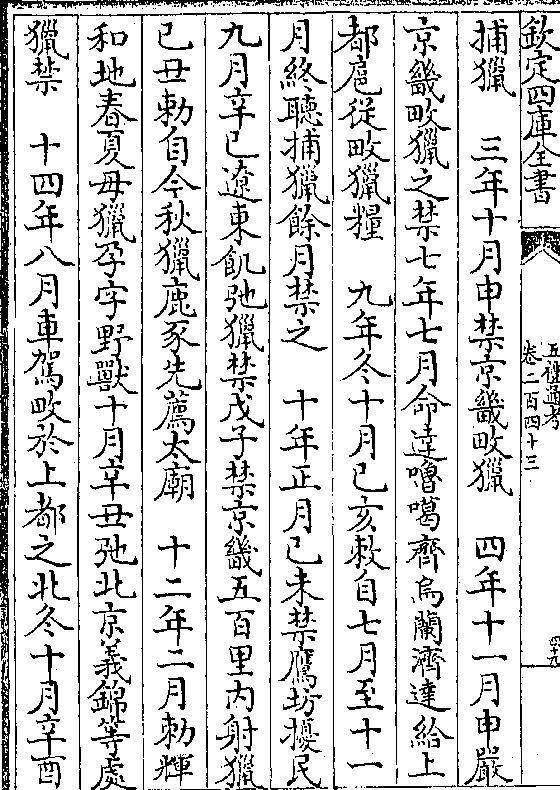 欽定四庫全書
五禮通考
卷二百四十三
四十九
捕獵　三年十月申禁京畿畋獵　四年十一月申嚴
京畿畋獵之禁七年七月命達嚕噶齊烏蘭濟達給上
都扈從畋獵糧　九年冬十月己亥敕自七月至十一
月終聽捕獵餘月禁之　十年正月己未禁鷹坊擾民
九月辛巳遼東飢弛獵禁戊子禁京畿五百里內射獵
己丑勅自今秋獵鹿豕先薦太廟　十二年二月勅輝
和地春夏毋獵孕字野獸十月辛丑弛北京義錦等處
獵禁　十四年八月車駕畋於上都之北冬十月辛酉